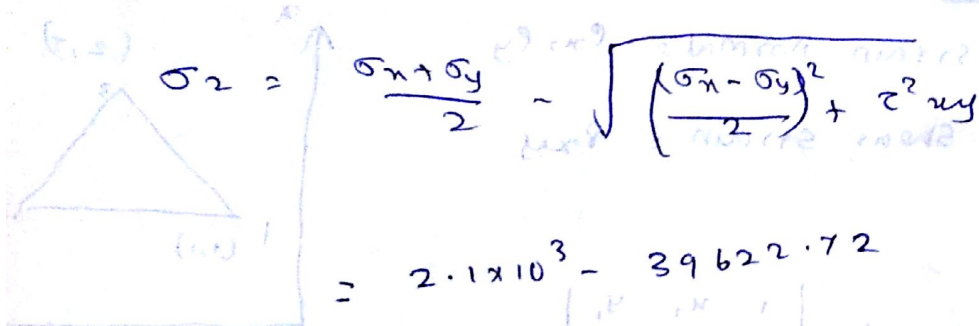 σ2 = σx + σy / 2 - √((σx - σy) / 2)² + τ² xy
= 2.1 x 10³ - 39622.72